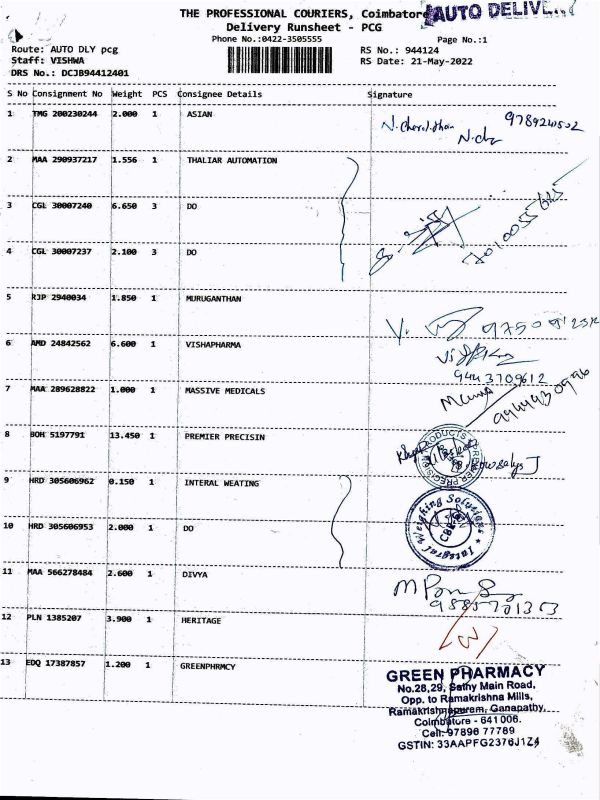 THE PROFESSIONAL COURIERS, Coimbatore
AUTO DELIV
Delivery Runsheet - PCG
Phone No.:0422-3505555
Page No.:1
Route: AUTO DLY pcg
RS No.: 944124
Staff: VISHWA
RS Date: 21-May-2022
DRS No.: DCJB94412401
S No Consignment No Weight PCS Consignee Details Signature
1 TMG 200230244 2.000 1 ASIAN
2 MAA 290937217 1.556 1 THALIAR AUTOMATION
3 CGL 30007240 6.650 3 DO
4 CGL 30007237 2.100 3 DO
5 RJP 2940034 1.850 1 MURUGANTHAN
6 AMD 24842562 6.600 1 VISHAPHARMA
9443709612
7 MAA 289628822 1.000 1 MASSIVE MEDICALS
9444430996
8 BOH 5197791 13.450 1 PREMIER PRECISIN
9 HRD 305606962 0.150 1 INTERAL WEATING
Integral Weighing Solutions
CBE
10 HRD 305606953 2.000 1 DO
11 MAA 566278484 2.600 1 DIVYA
12 PLN 1385207 3.900 1 HERITAGE
13 EDQ 17387857 1.200 1 GREENPHRMCY
GREEN PHARMACY
No.28,29, Sathy Main Road,
Opp. to Ramakrishna Mills,
Ramakrishnapuram, Ganapathy,
Coimbatore - 641 006.
Cell: 97896 77789
GSTIN: 33AAPFG2376J1Z4